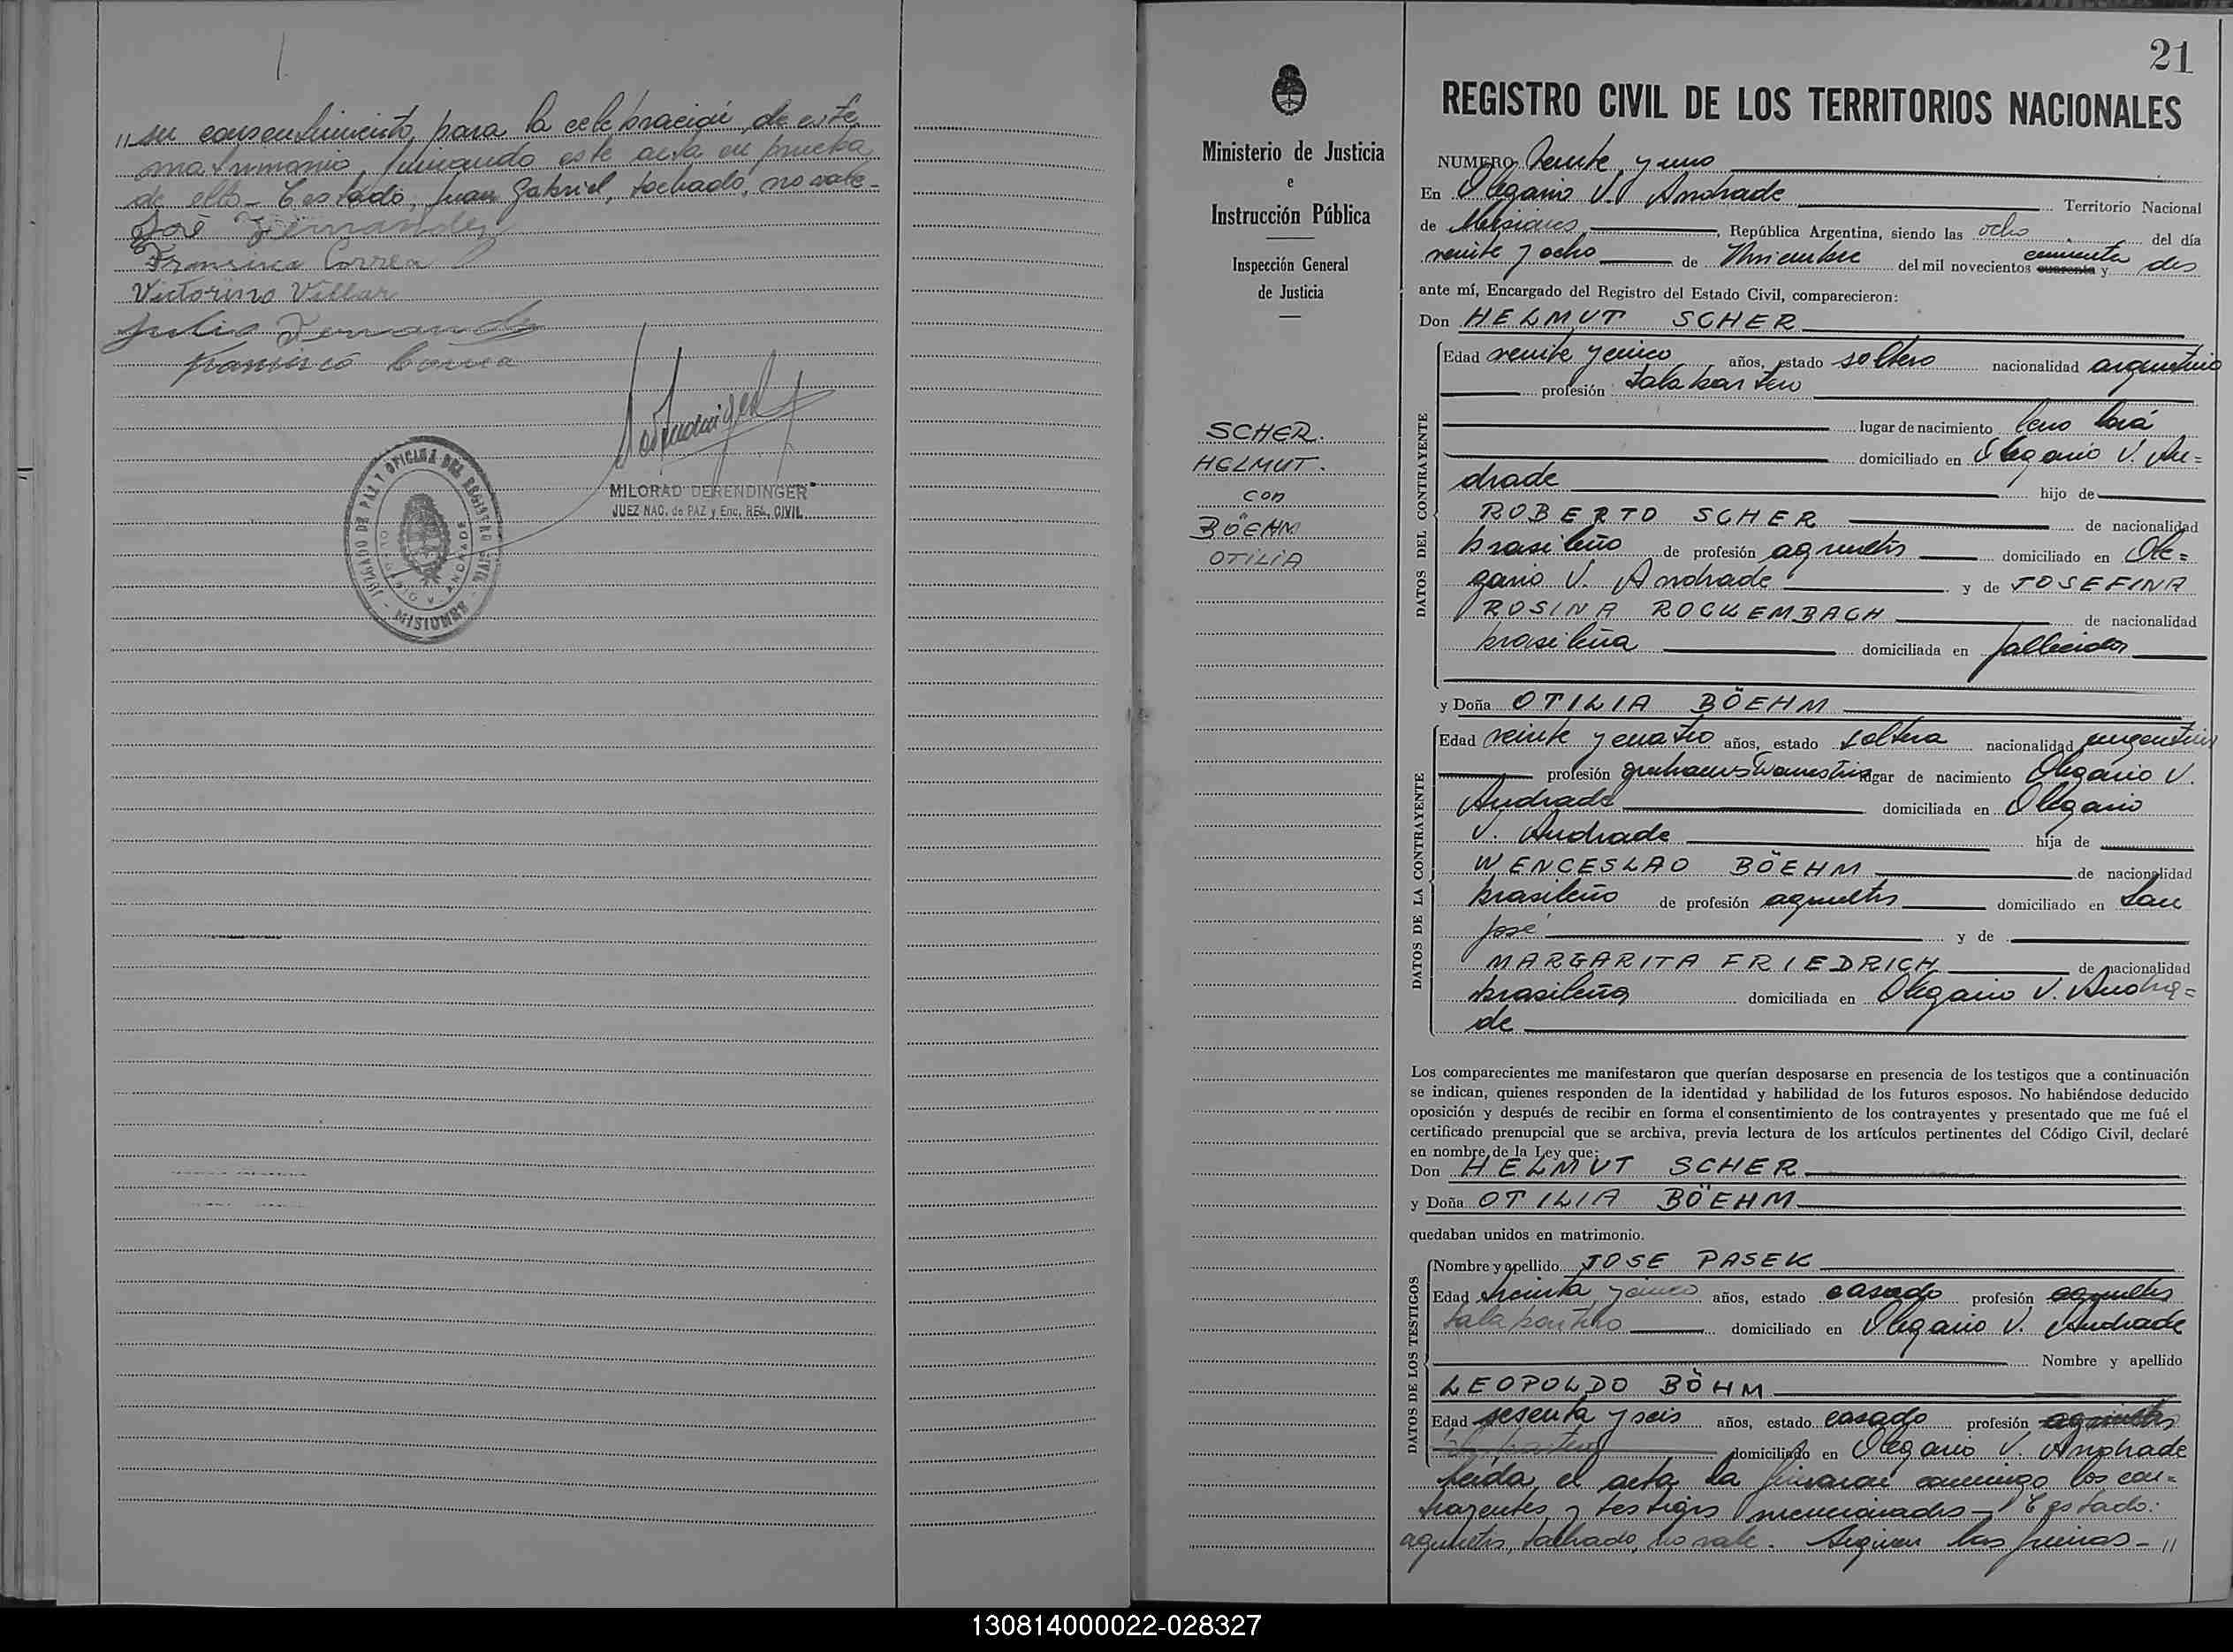 "su consentimiento, para la celebración de este
matrimonio, firmando este acta en prueba
de ello - Testado, Juan Gabriel, tachado, no vale -
José Fernandez
Francisca Correa
Victorino Villar
Julio Fernandez
Francisco Correa
MILORAD DERENDINGER
JUEZ NAC. de PAZ y Enc. REG. CIVIL
JUZGADO DE PAZ Y OFICINA DEL REGISTRO CIVIL - MISIONES -
OLEGARIO V. ANDRADE
Ministerio de Justicia
e
Instrucción Pública
Inspección General
de Justicia
SCHER.
HELMUT.
con
BÖEHM
OTILIA
21
REGISTRO CIVIL DE LOS TERRITORIOS NACIONALES
NUMERO Veinte y uno
En Olegario V. Andrade Territorio Nacional
de Misiones, República Argentina, siendo las ocho del día
veinte y ocho de Noviembre del mil novecientos cuarenta cincuenta y dos
ante mí, Encargado del Registro del Estado Civil, comparecieron:
Don HELMUT SCHER
DATOS DEL CONTRAYENTE
Edad veinte y cinco años, estado soltero nacionalidad argentino
profesión talabartero
lugar de nacimiento Cerro Corá
domiciliado en Olegario V. An=
drade hijo de
ROBERTO SCHER de nacionalidad
brasileño de profesión agricultor domiciliado en Ole=
gario V. Andrade y de JOSEFINA
ROSINA ROCKEMBACH de nacionalidad
brasileña domiciliada en fallecida
y Doña OTILIA BÖEHM
DATOS DE LA CONTRAYENTE
Edad veinte y cuatro años, estado soltera nacionalidad argentina
profesión lugar de nacimiento Olegario V.
Andrade domiciliada en Olegario
V. Andrade hija de
WENCESLAO BÖEHM de nacionalidad
brasileño de profesión agricultor domiciliado en San
José y de
MARGARITA FRIEDRICH de nacionalidad
brasileña domiciliada en Olegario V. Andra=
de
Los comparecientes me manifestaron que querían desposarse en presencia de los testigos que a continuación
se indican, quienes responden de la identidad y habilidad de los futuros esposos. No habiéndose deducido
oposición y después de recibir en forma el consentimiento de los contrayentes y presentado que me fué el
certificado prenupcial que se archiva, previa lectura de los artículos pertinentes del Código Civil, declaré
en nombre de la Ley que:
Don HELMUT SCHER
y Doña OTILIA BÖEHM
quedaban unidos en matrimonio.
DATOS DE LOS TESTIGOS
Nombre y apellido JOSE PASEK
Edad treinta y cinco años, estado casado profesión agricultor
talabartero domiciliado en Olegario V. Andrade
Nombre y apellido
LEOPOLDO BÖHM
Edad sesenta y seis años, estado casado profesión agricultor
domiciliado en Olegario V. Andrade
Leida el acta la firmaron conmigo los con=
trayentes y testigos mencionados - Testado:
agricultor, tachado, no vale. Siguen las firmas - "
130814000022-028327